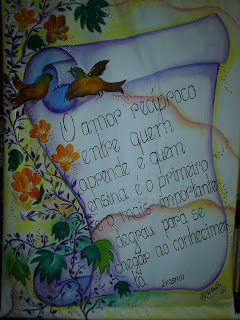 O amor recíproco
entre quem
aprende e quem
ensina é o primeiro
e mais importante
degrau para se
chegar ao conhecimen
to.
Erasmo